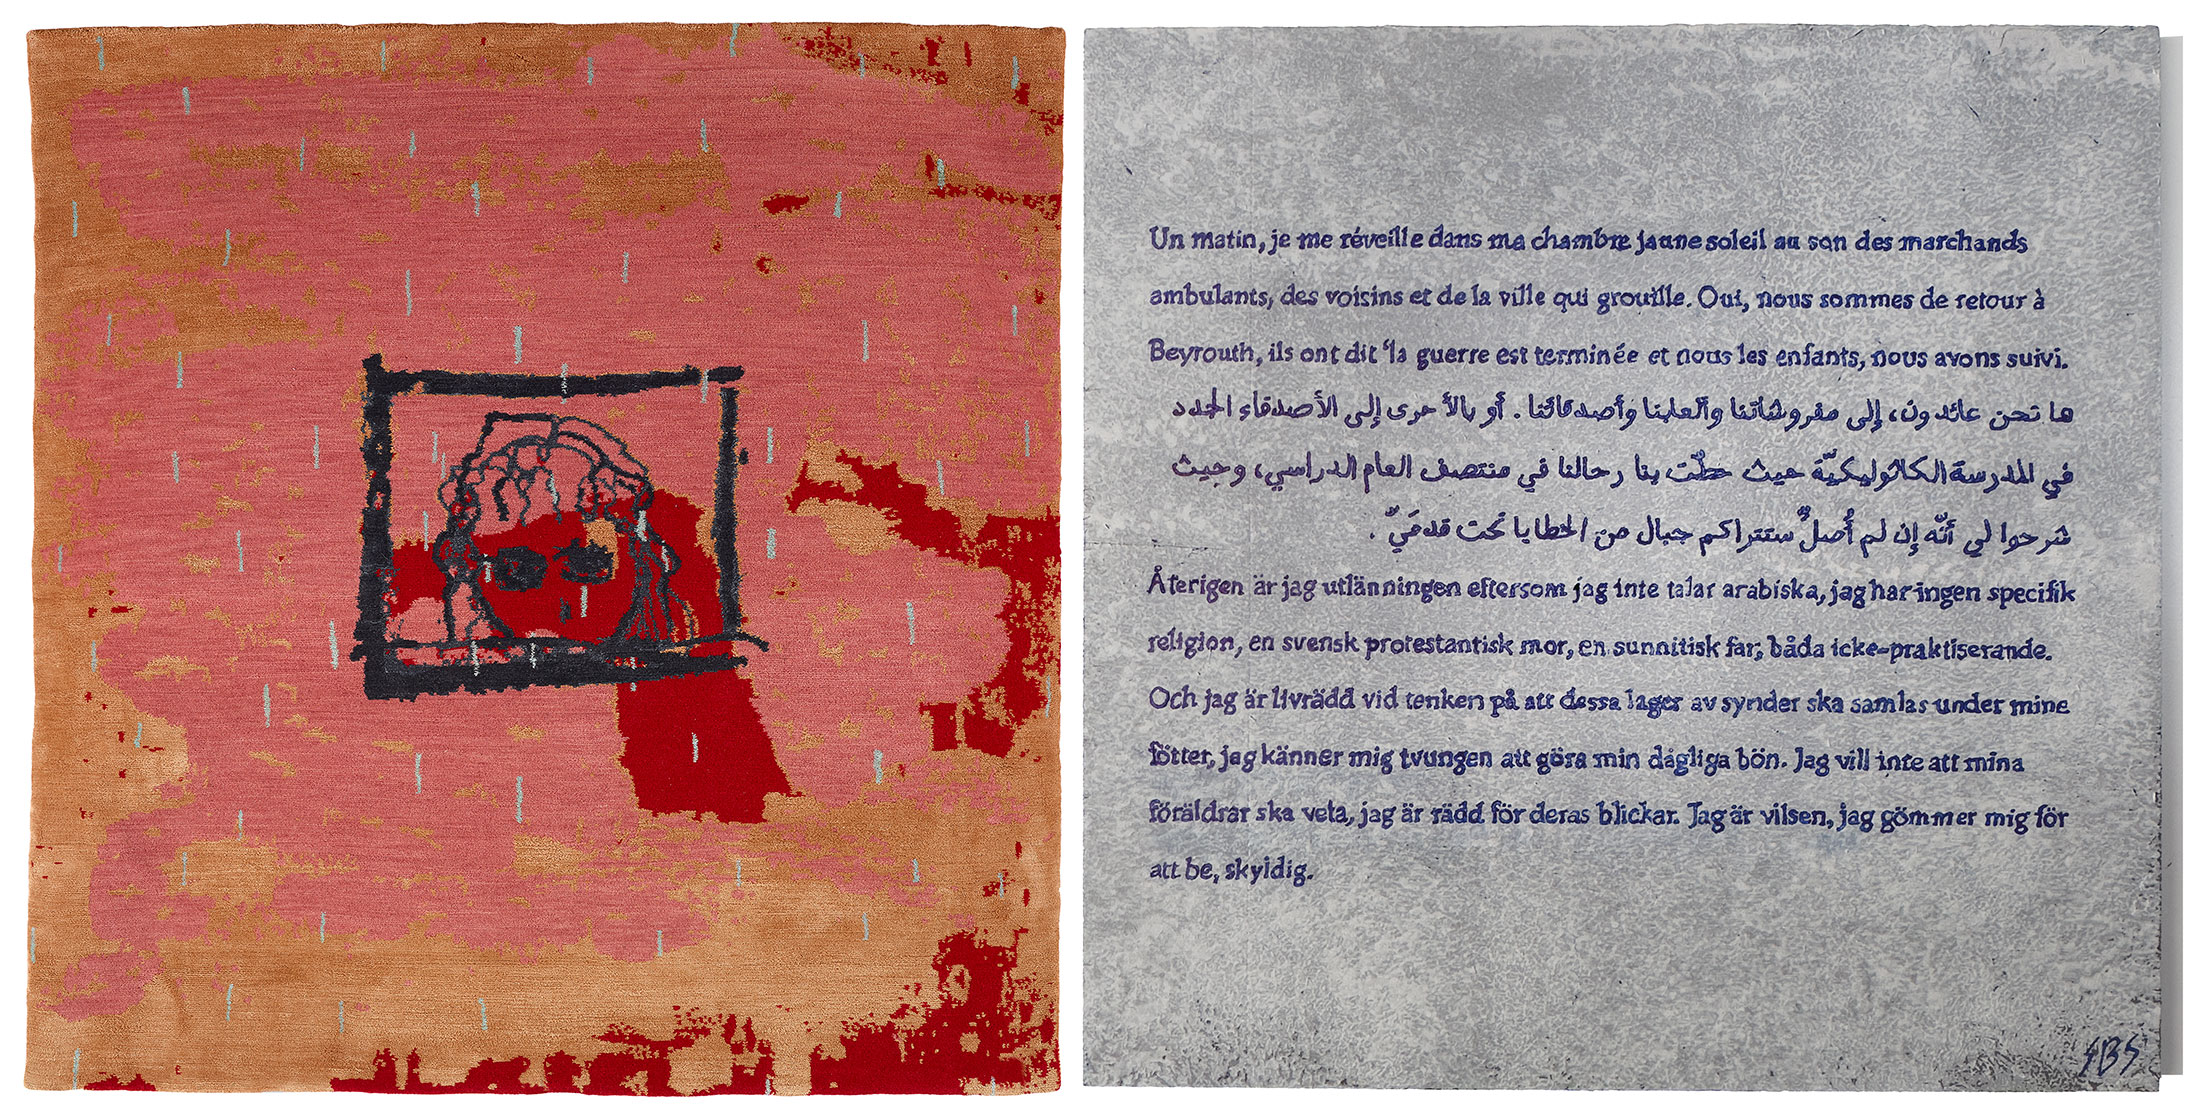 Un matin, je me réveille dans ma chambre jaune soleil au son des marchands
ambulants, des voisins et de la ville qui grouille. Oui, nous sommes de retour à
Beyrouth, ils ont dit ‘la guerre est terminée et nous les enfants, nous avons suivi.
ها نحن عائدون، إلى مفروشاتنا وألعابنا وأصدقائنا. أو بالأحرى إلى الأصدقاء الجدد
في المدرسة الكاثوليكيّة حيث حطّت بنا رحالنا في منتصف العام الدراسي، وحيث
شرحوا لي أنّه إن لم أُصلِّ ستتراكم جبال من الخطايا تحت قدمَيّ.
Återigen är jag utlänningen eftersom jag inte talar arabiska, jag har ingen specifik
religion, en svensk protestantisk mor, en sunnitisk far, båda icke-praktiserande.
Och jag är livrädd vid tenken på att dessa lager av synder ska samlas under mine
fötter, jag känner mig tvungen att göra min dagliga bön. Jag vill inte att mina
föräldrar ska veta, jag är rädd för deras blickar. Jag är vilsen, jag gömmer mig för
att be, skyldig.
SBS